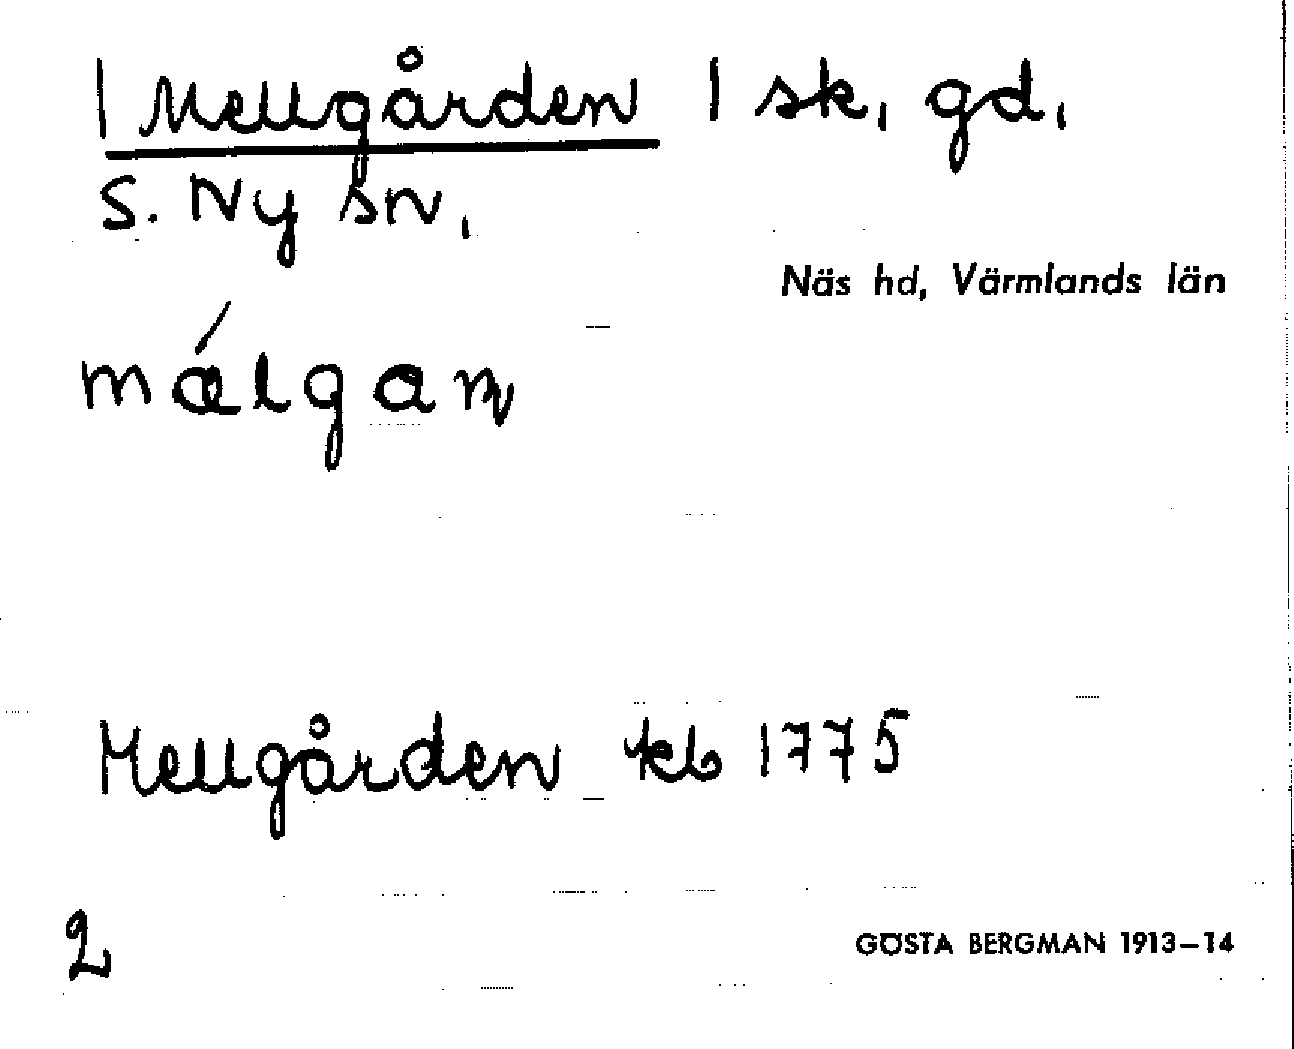 | Mellgården | sk, gd,
S. Ny sn,
Näs hd, Värmlands län
málgan
Mellgården kb 1775
2
GÖSTA BERGMAN 1913–14